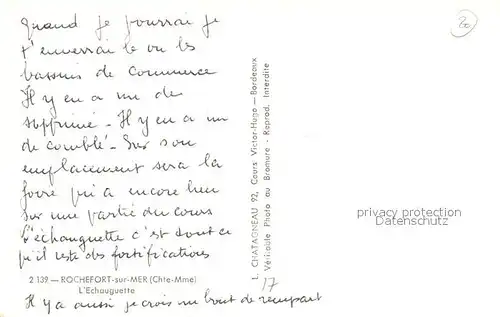 Quand je pourrai je
t'enverrai le ou les
bassins de commerce
Il y en a un de
supprimé - Il y en a un
de comblé - Sur son
emplacement sera la
foire qui a encore lieu
sur une partie du cours
L'échauguette c'est tout ce
qu'il reste des fortifications
2.139 — ROCHEFORT-sur-MER (Chte-Mme)
L'Echauguette
Il y a aussi je crois un bout de rempart
L. CHATAGNEAU 92, Cours Victor-Hugo — Bordeaux
Véritable Photo au Bromure - Reprod. Interdite
17
20
privacy protection
Datenschutz